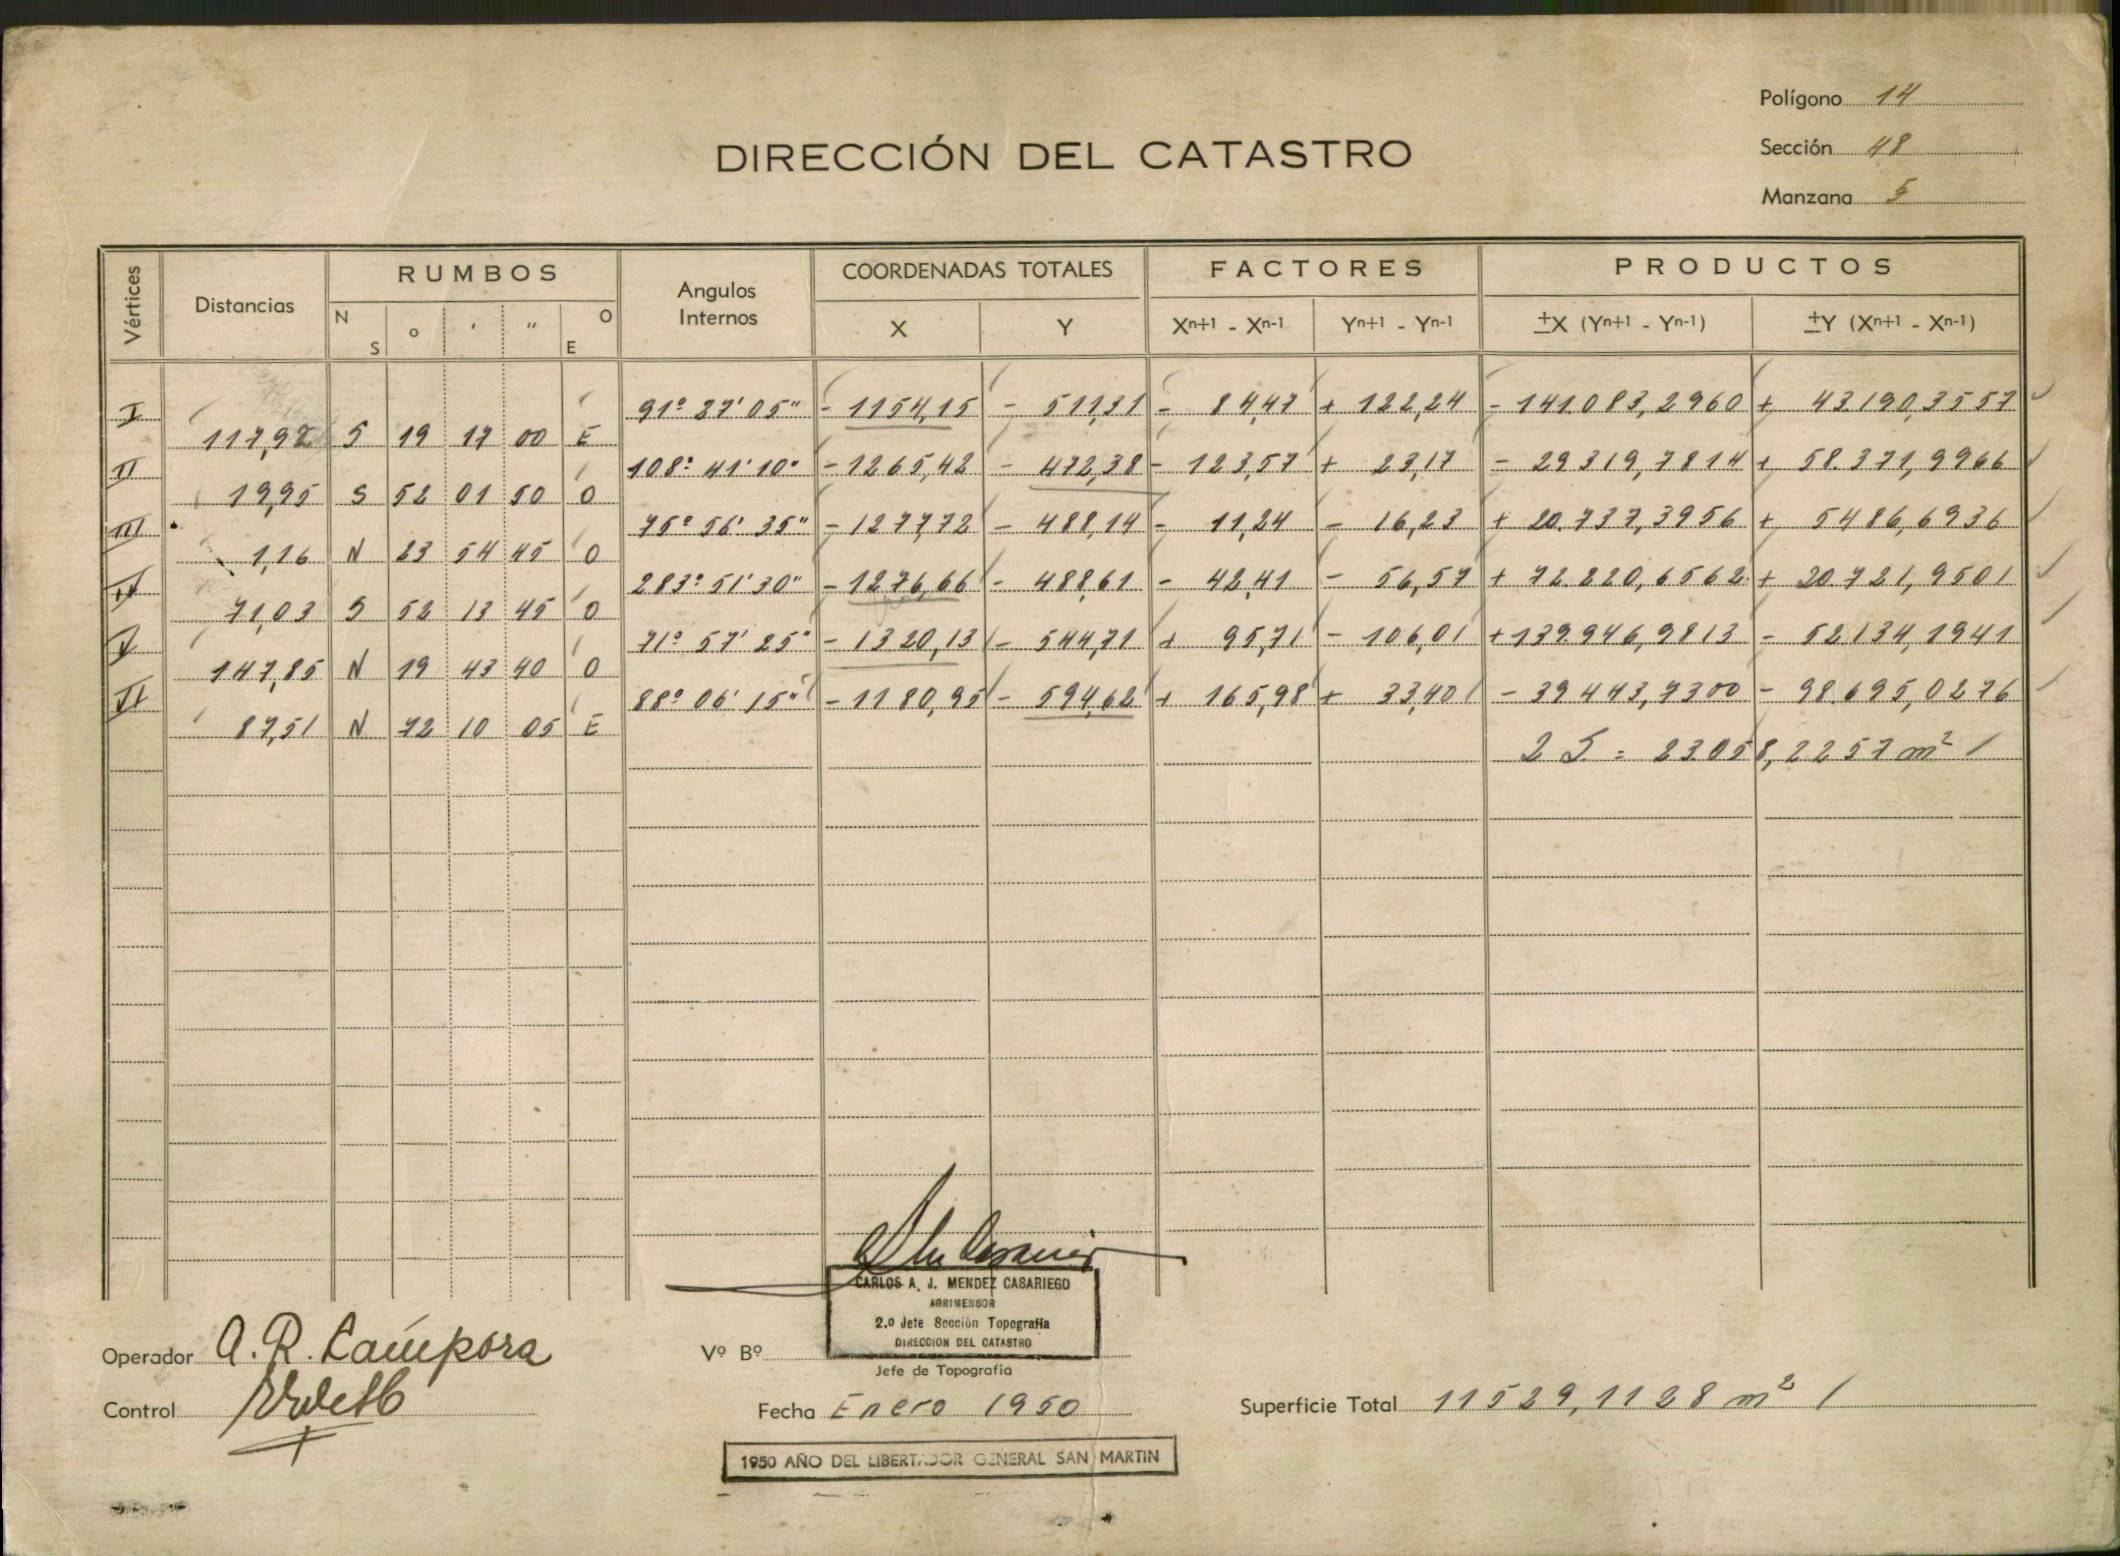 Polígono 14
DIRECCIÓN DEL CATASTRO
Sección 48
Manzana 5
Vértices Distancias RUMBOS Angulos Internos COORDENADAS TOTALES FACTORES PRODUCTOS
N S ° ' " O E X Y Xn+1 - Xn-1 Yn+1 - Yn-1 ±X (Yn+1 - Yn-1) ±Y (Xn+1 - Xn-1)
I 91° 27' 05" - 1154,15 - 511,31 - 84,47 + 122,24 - 141.083,2960 + 43.190,3557
117,92 S 19 17 00 E
II 108° 41' 10" - 1265,42 - 472,38 - 123,57 + 23,17 - 29319,7814 + 58.371,9966
19,95 S 52 01 50 O
III 75° 56' 35" - 1277,72 - 488,14 - 11,24 - 16,23 + 20.737,3956 + 5486,6936
1,16 N 23 54 45 O
IV 283° 51' 30" - 1276,66 - 488,61 - 42,41 - 56,57 + 72.220,6562 + 20.721,9501
71,03 S 52 13 45 O
V 71° 57' 25" - 1320,13 - 544,71 + 95,71 - 106,01 + 139.946,9813 - 52.134,1941
147,85 N 19 43 40 O
VI 88° 06' 15" - 1180,95 - 594,62 + 165,98 + 33,40 - 39443,7300 - 98.695,0276
87,51 N 72 10 05 E
2 S = 23.058,2257 m²
CARLOS A. J. MENDEZ CASARIEGO
AGRIMENSOR
2.º Jefe Sección Topografía
DIRECCION DEL CATASTRO
Operador A. R. Cámpora
Vº Bº
Jefe de Topografía
Control
Fecha Enero 1950
Superficie Total 11529,1128 m²
1950 AÑO DEL LIBERTADOR GENERAL SAN MARTIN